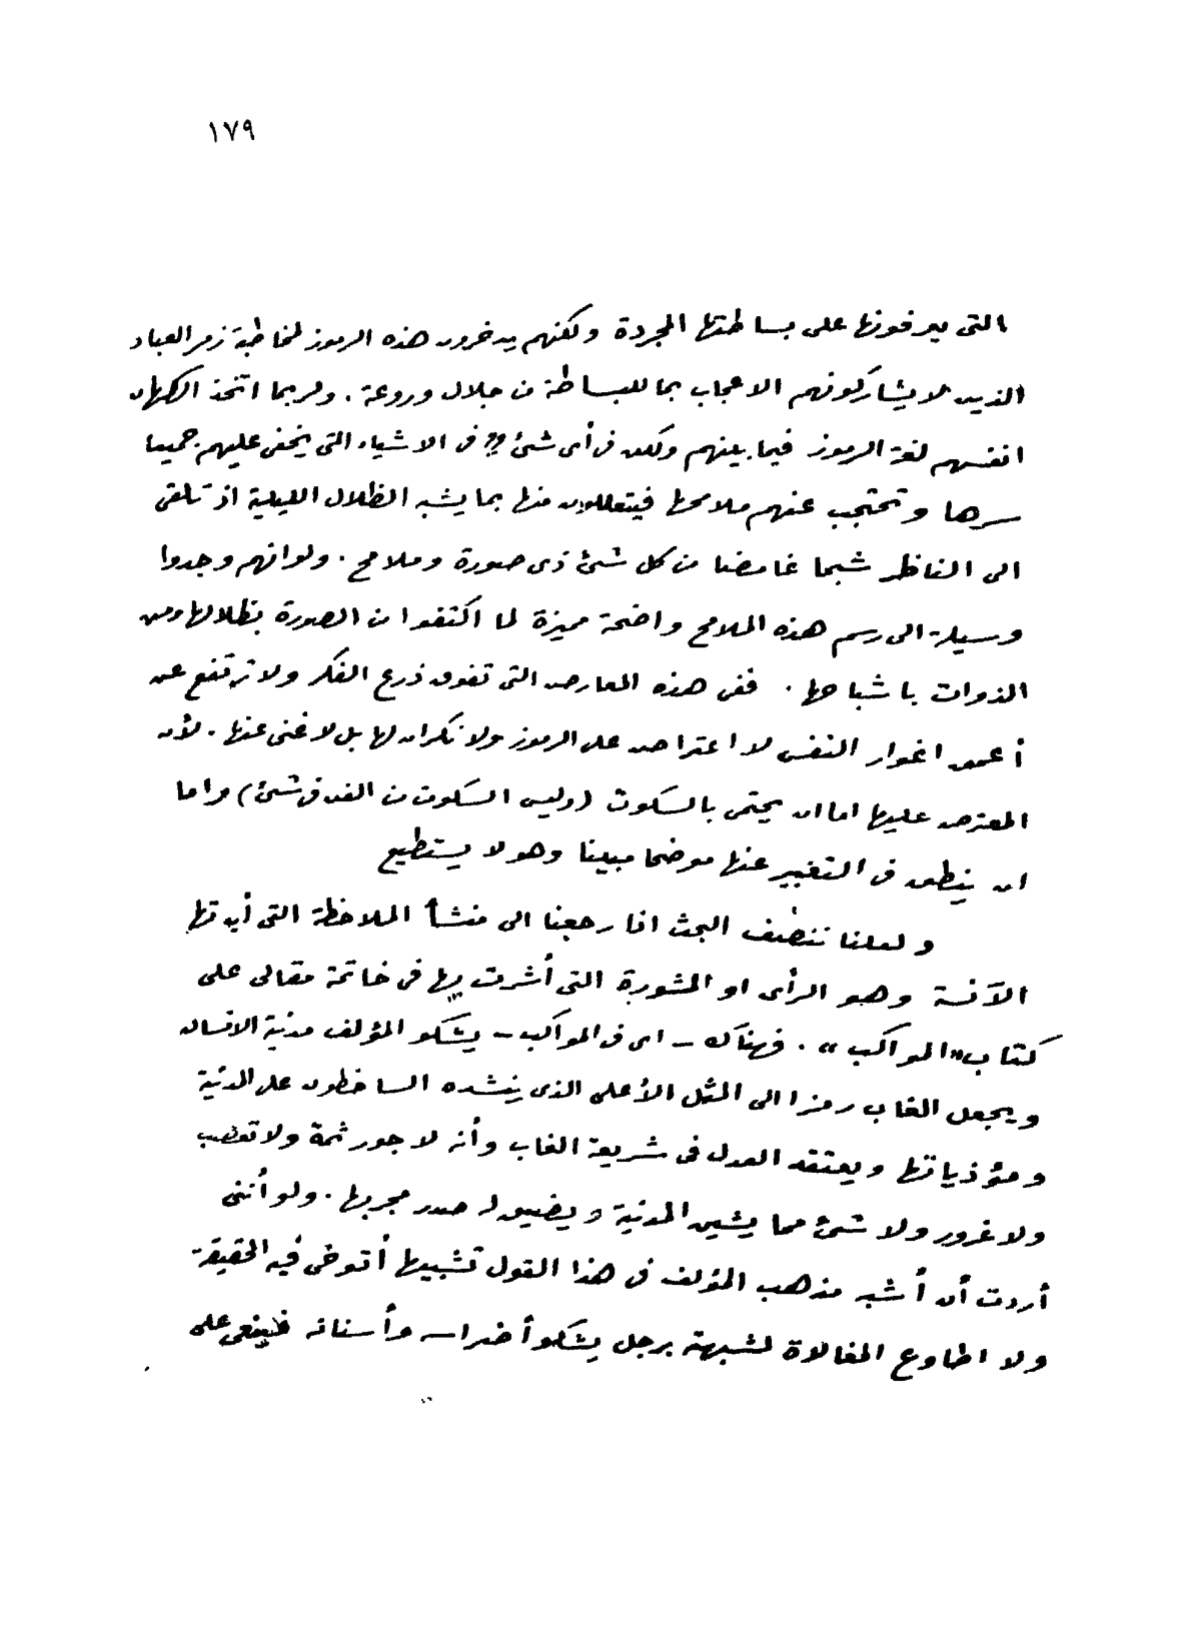 ١٧٩
التى يعرفونها على بساطتها المجردة ولكنهم يدخرون هذه الرموز لمخاطبة زمر العباد
الذين لا يشاركونهم الاعجاب بما للبساطة من جلال وروعة . ولربما اتخذ الكهان
انفسهم لغة الرموز فيما بينهم ولكن فى أى شئ ؟؟ فى الاشياء التى يخفى عليهم جميعا
سرها وتحتجب عنهم ملامحها فيتعللون منها بما يشبه الظلال الليلية اذ تلقى
الى الناظر شبحا غامضا من كل شئ ذى صورة وملامح . ولو انهم وجدوا
وسيلة الى رسم هذه الملامح واضحة مميزة لما اكتفوا من الصورة بظلالها ومن
الذوات باشباحها . ففى هذه المعارض التى تفوق ذرع الفكر ولا ترتفع عن
أعمق اغوار النفس لا اعتراض على الرموز ولا نكران لها بل لا غنى عنها . لأن
المعترض عليها اما ان يحتمى بالسكوت (وليس السكوت من الفن فى شئ) واما
ان ينطق فى التعبير عنها موضحا مبينا وهو لا يستطيع
ولعلنا ننصف البحث اذا رجعنا الى منشأ الملاحظة التى أبدتها
الآنسة وهو الرأى او المشورة التى أشرت بها فى خاتمة مقالى على
كتاب «المواكب» . فهناك - اى فى المواكب - يشكو المؤلف مدنية الانسان
ويجعل الغاب رمزا الى المثل الأعلى الذى ينشده الساخطون على المدنية
ومؤذياتها ويعتقد العدل فى شريعة الغاب وأنه لا جور ثمة ولا تعصب
ولا غرور ولا شئ مما يشين المدنية ويضيق له صدر مجربها . ولو أننى
أردت أن أشبه مذهب المؤلف فى هذا القول تشبيها أتوخى فيه الحقيقة
ولا اطاوع المغالاة لشبهته برجل يشكو أضراسه وأسنانه فينعى على